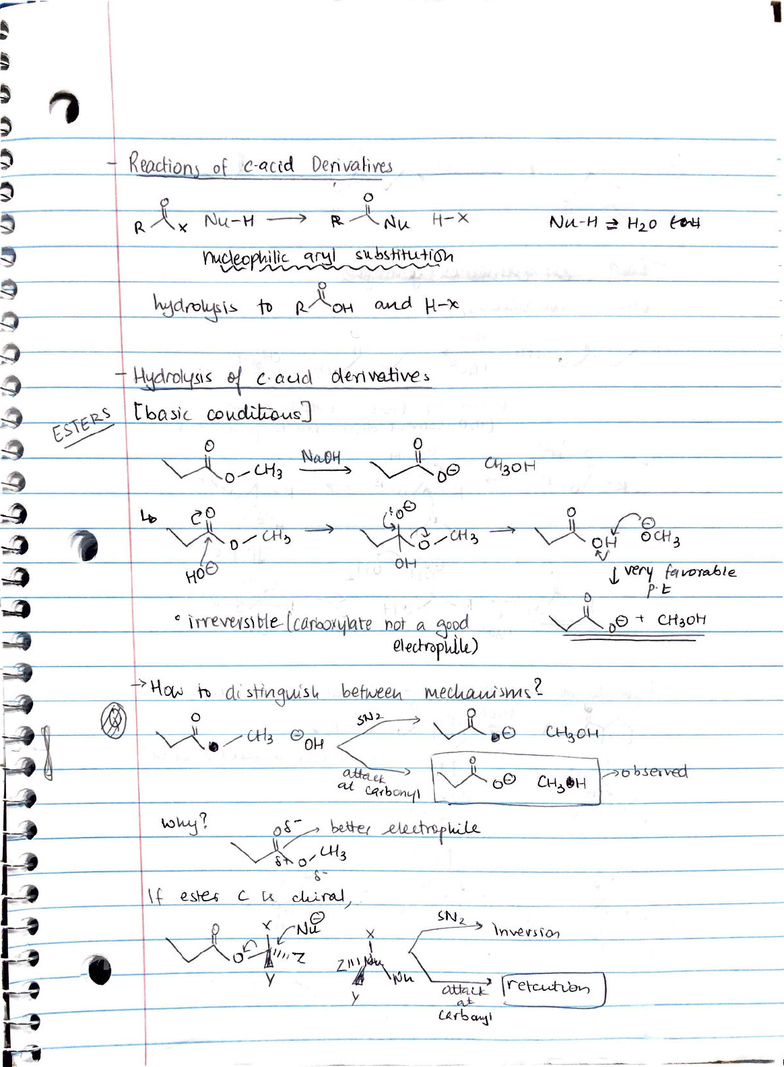 - Reactions of c-acid Derivatives
R O X Nu-H → R O Nu H-X Nu-H ≥ H2O
nucleophilic aryl substitution
hydrolysis to R O OH and H-X
- Hydrolysis of c.acid derivatives
ESTERS [basic conditions]
O O-CH3 NaOH → O O⊖ CH3OH
O O-CH3 → O⊖ O-CH3 → O OH ⊖OCH3
HO⊖ OH ↓ very favorable
p.t
O O⊖ + CH3OH
° irreversible (carboxylate not a good
electrophile)
→ How to distinguish between mechanisms?
O ● CH3 ⊖OH SN2 → O ●⊖ CH3OH
attack at carbonyl → O O⊖ CH3●H → observed
why? Oδ- → better electrophile
δ+ O-CH3
δ-
If ester C is chiral,
O O X Y Z Nu⊖ X Z Y Nu SN2 → Inversion
attack → retention
at
carbonyl